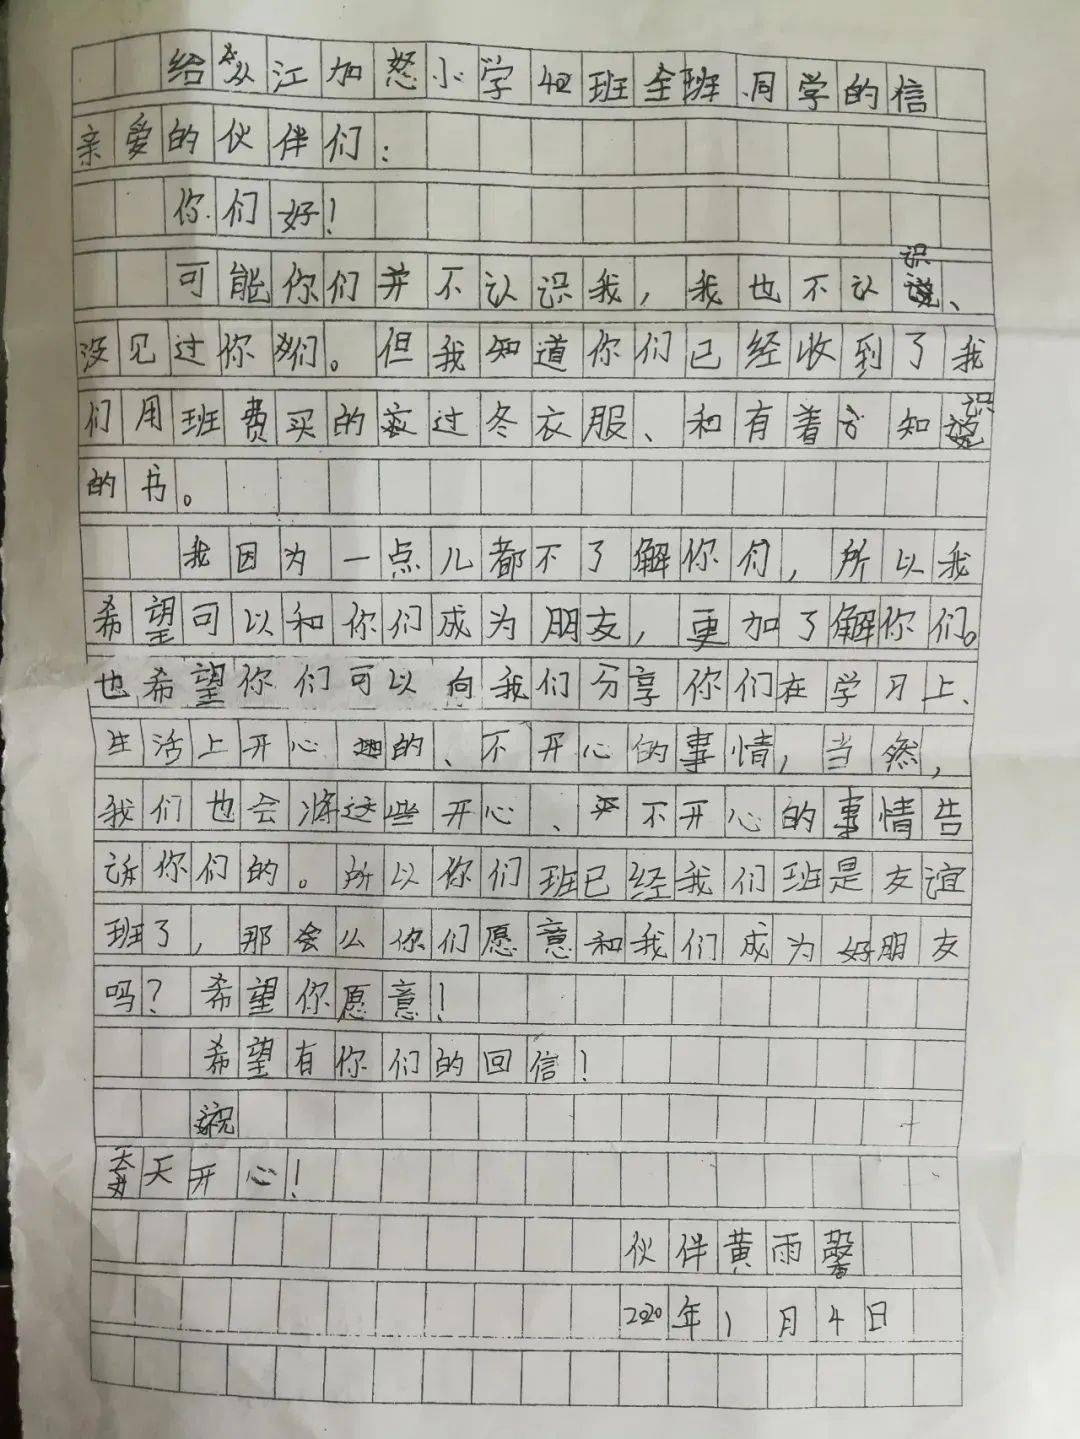 给从江加怒小学42班全班同学的信
亲爱的伙伴们：
你们好！
可能你们并不认识我，我也不认识、
没见过你们。但我知道你们已经收到了我
们用班费买的过冬衣服、和有着知识
的书。
我因为一点儿都不了解你们，所以我
希望可以和你们成为朋友，更加了解你们。
也希望你们可以向我们分享你们在学习上、
生活上开心的、不开心的事情，当然，
我们也会将这些开心、不开心的事情告
诉你们的。所以你们班已经我们班是友谊
班了，那么你们愿意和我们成为好朋友
吗？希望你愿意！
希望有你们的回信！
祝
天天开心！
伙伴黄雨馨
2020年1月4日